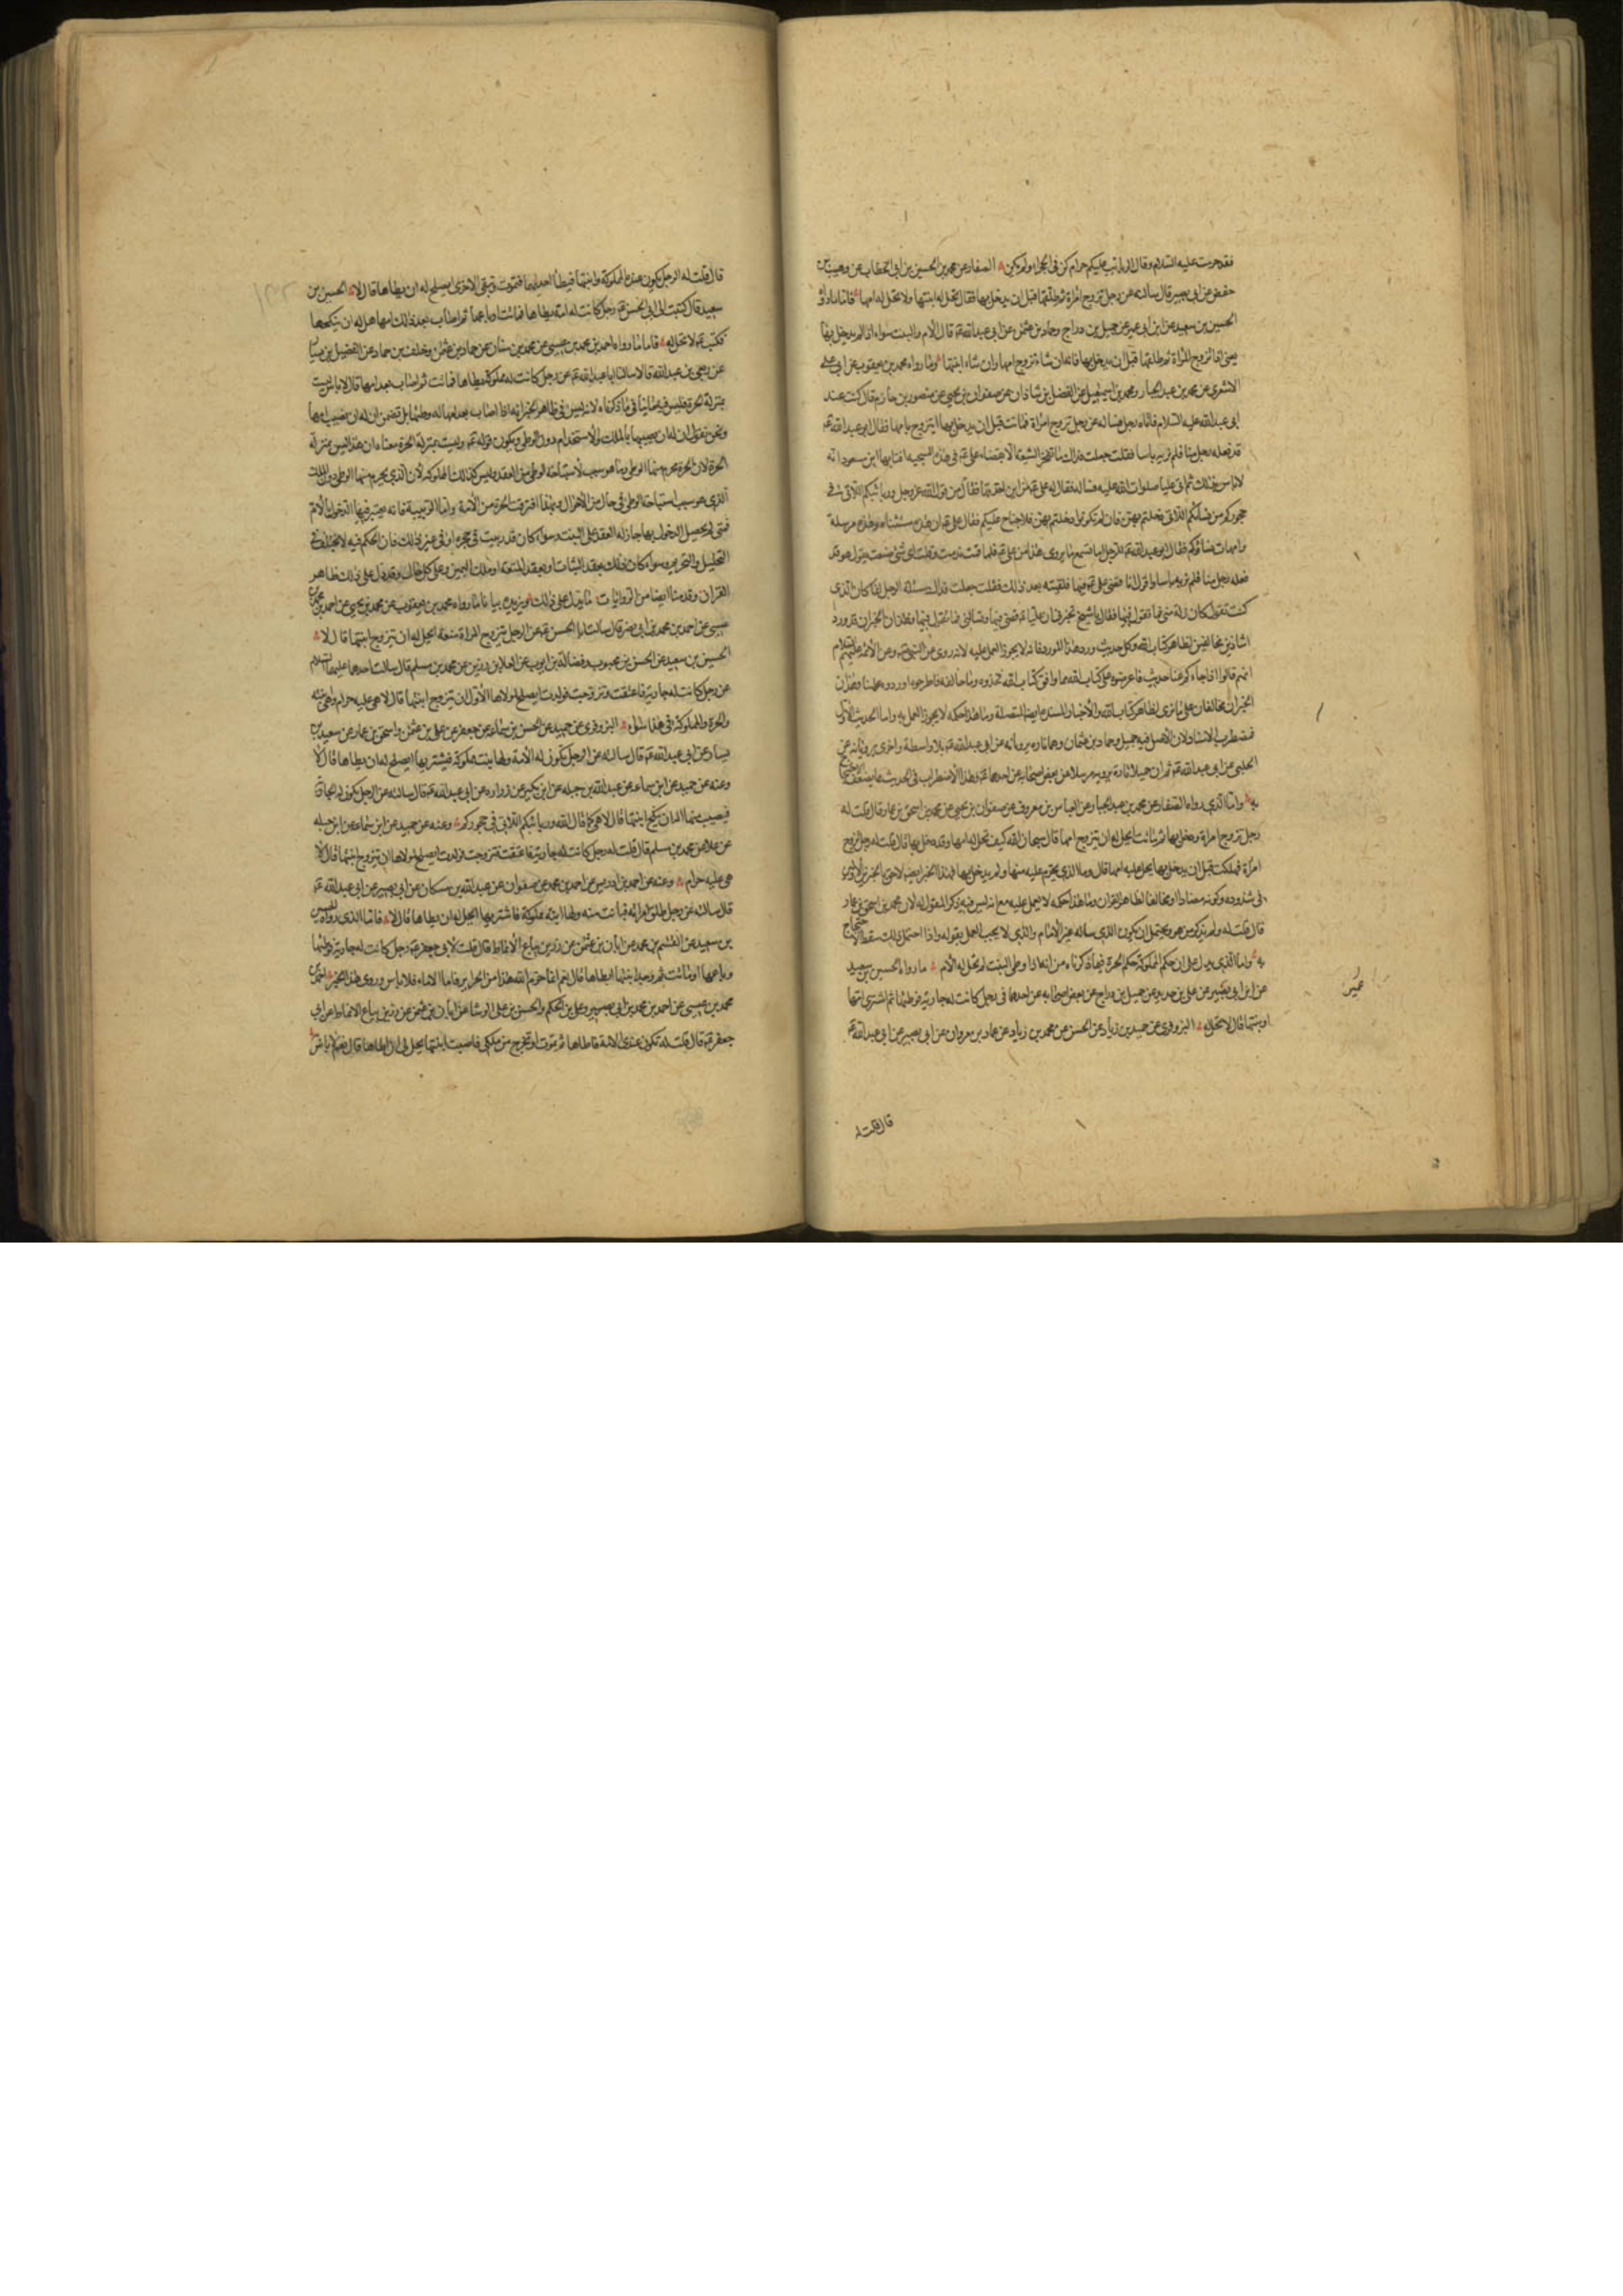 فقد حرمت عليه الام وقال الربائب عليكم حرام كن في الحجر او لم يكن الصفار عن محمد بن الحسين بن ابي الخطاب عن وهيب بن
حفص عن ابي بصير قال سالته عن رجل تزوج امراة ثم طلقها قبل ان يدخل بها فقال تحل له ابنتها ولا تحل له امها فاما ما رواه
الحسين بن سعيد عن ابن ابي عمير عن جميل بن دراج وحماد بن عثمن عن ابي عبد الله ع قال الام والبنت سواء اذا لم يدخل بها
يعني اذا تزوج المراة ثم طلقها قبل ان يدخل بها فانه ان شاء تزوج امها وان شاء ابنتها وما رواه محمد بن يعقوب عن ابي علي
الاشعري عن محمد بن عبد الجبار ومحمد بن اسمعيل عن الفضل بن شاذان عن صفوان بن يحيى عن منصور بن حازم قال كنت عند
ابي عبد الله عليه السلام فاتاه رجل فساله عن رجل تزوج امراة فماتت قبل ان يدخل بها ايتزوج بامها فقال ابو عبد الله ع
قد فعله رجل منا فلم نر به باسا فقلت جعلت فداك ما تفخر الشيعة الا بقضاء علي ع في هذه الشمخية افتاها ابن مسعود انه
لا باس بذلك ثم اتى عليا صلوات الله عليه فساله فقال له علي ع من اين اخذتها فقال من قول الله عز وجل وربائبكم اللاتي في
حجوركم من نسائكم اللاتي دخلتم بهن فان لم تكونوا دخلتم بهن فلا جناح عليكم فقال علي ع ان هذه مستثناه وهذه مرسلة
وامهات نسائكم فقال ابو عبد الله ع للرجل اما تسمع ما يروى هذا عن علي ع فلما قمت ندمت وقلت اي شئ صنعت يقول هو قد
فعله رجل منا فلم نر به باسا واقول انا قضى علي ع فيها فلقيته بعد ذلك فقلت جعلت فداك مسئلة الرجل انما كان الذي
كنت تقول كان زلة مني فما تقول فيها فقال يا شيخ تخبرني ان عليا ع قضى فيها وتسالني ما تقول فيها فهذان الخبران قد وردا
شاذين مخالفين لظاهر كتاب الله وكل حديث ورد هذا المورد فانه لا يجوز العمل عليه لانه روى عن النبي ص وعن الائمة عليهم السلام
انهم قالوا اذا جاءكم عنا حديث فاعرضوه على كتاب الله فما وافق كتاب الله فخذوه وما خالفه فاطرحوه او ردوه علينا وهذان
الخبران مخالفان على ما نرى لظاهر كتاب الله والاخبار المسنده ايضا المفصلة وما هذا حكمه لا يجوز العمل به واما الحديث الاول
فمضطرب الاسناد لان الاصل فيه جميل وحماد بن عثمان وهما تارة يرويانه عن ابي عبد الله ع بلا واسطة واخرى يرويانه عن
الحلبي عن ابي عبد الله ع ثم ان جميلا تارة يرويه مرسلا عن بعض اصحابه عن احدهما ع وهذا الاضطراب في الحديث مما يضعف الاحتجاج
به واما الذي رواه الصفار عن محمد بن عبد الجبار عن العباس بن معروف عن صفوان بن يحيى عن محمد بن اسحق بن عمار قال قلت له
رجل تزوج امراة ودخل بها ثم ماتت ايحل له ان يتزوج امها قال سبحان الله كيف تحل له امها وقد دخل بها قال قلت له رجل تزوج
امراة فهلكت قبل ان يدخل بها يحل عليه امها قال وما الذي يحرم عليه منها ولم يدخل بها فهذا الخبر ايضا لاحق بالخبرين الاولين
في شذوذه وكونه مضادا ومخالفا لظاهر القران وما هذا حكمه لا يعمل عليه مع انه ليس فيه ذكر المقول له لان محمد بن اسحق بن عمار
قال قلت له ولم يذكر من هو ويحتمل ان يكون الذي ساله غير الامام والذي لا يجب العمل بقوله واذا احتمل ذلك سقط الاحتجاج
به واما الذي يدل على ان حكم المملوكة حكم الحرة فيما ذكرناه من انه اذا وطى البنت لم تحل له الام ما رواه الحسين بن سعيد
عن ابن ابي عمير عن علي بن حديد عن جميل بن دراج عن بعض اصحابه عن احدهما في رجل كانت له جارية فوطئها ثم اشترى امها
او بنتها قال لا تحل له البزوفري عن حميد بن زياد عن الحسن عن محمد بن زياد عن عمار بن مروان عن ابي بصير عن ابي عبد الله ع
عمير
قال قلت له
قال قلت له الرجل يكون عنده المملوكة وابنتها فيطأ احديهما فتموت وتبقى الاخرى ايصلح له ان يطاها قال لا الحسين بن
سعيد قال كتبت الى ابي الحسن ع رجل كانت له امة يطاها فماتت او باعها ثم اصاب بعد ذلك امها هل له ان ينكحها
فكتب ع لا تحل له فاما ما رواه احمد بن محمد بن عيسى عن محمد بن سنان عن حماد بن عثمن وخلف بن حماد عن الفضيل بن يسار
عن ربعي بن عبد الله قالا سالنا ابا عبد الله ع عن رجل كانت له مملوكة يطاها فماتت ثم اصاب بعد امها قال لا باس ليست
بمنزلة الحرة فليس فيه منافيا لما ذكرناه لانه ليس في ظاهر الخبر انه اذا اصاب بعد امها له وطئها بل تضمن ان له ان يصيب امها
ونحن نقول ان له ان يصيبها بالملك والاستخدام دون الوطى ويكون قوله ع وليست بمنزلة الحرة معناه ان هذه ليس بمنزلة
الحرة لان الحرة محرم منها الوطى وما هو سبب لاستباحة الوطى من العقد وليس كذلك المملوكة لان الذي يحرم منها الوطى دون الملك
الذي هو سبب استباحة الوطى في حال من الاحوال وبهذا افترقت الحرة من الامة واما الربيبة فانه يعتبر فيها الدخول بالام
فمتى لم يحصل الدخول بها جاز له العقد على البنت وسواء كان قد ربيت في حجره او في غير ذلك فان الحكم فيه لا يختلف في
التحليل والتحريم وسواء كان ذلك بعقد البتات او بعقد المتعة او ملك اليمين وعلى كل حال وقد دل على ذلك ظاهر
القران وقدمنا ايضا من الروايات ما يدل على ذلك ويزيده بيانا ما رواه محمد بن يعقوب عن محمد بن يحيى عن احمد بن محمد بن
عيسى عن احمد بن محمد بن ابي نصر قال سالت ابا الحسن ع عن الرجل يتزوج المراة متعة ايحل له ان يتزوج ابنتها قال لا
الحسين بن سعيد عن الحسن بن محبوب وفضالة بن ايوب عن العلا بن رزين عن محمد بن مسلم قال سالت احدهما عليهما السلام
عن رجل كانت له جارية فاعتقت وتزوجت فولدت ايصلح لمولاها الاول ان يتزوج ابنتها قال لا هي عليه حرام وهي ابنته
والحرة والمملوكة في هذا سواء البزوفري عن حميد عن الحسن بن سماعة عن جعفر عن علي بن عثمن واسحق بن عمار عن سعيد بن
يسار عن ابي عبد الله ع قال سالته عن الرجل تكون له الامة ولها بنت مملوكة فيشتريها ايصلح له ان يطاها قال لا
وعنه عن حميد عن ابن سماعة عن عبد الله بن جبله عن ابن بكير عن زراره عن ابي عبد الله ع قال سالته عن الرجل يكون له الجارية
فيصيب منها اله ان ينكح ابنتها قال لا هي كما قال الله وربائبكم اللاتي في حجوركم وعنه عن حميد عن ابن سماعة عن ابن جبله
عن علا عن محمد بن مسلم قال قلت له رجل كانت له جارية فاعتقت فتزوجت فولدت ايصلح لمولاها ان يتزوج ابنتها قال لا
هي عليه حرام وعنه عن احمد بن ادريس عن احمد بن محمد عن صفوان عن عبد الله بن مسكان عن ابي بصير عن ابي عبد الله ع
قال سالته عن رجل طلق امراته فبانت منه ولها ابنة مملوكة فاشتريها ايحل له ان يطاها قال لا فاما الذي رواه الحسين
بن سعيد عن القسم بن محمد عن ابان بن عثمن عن رزين بياع الانماط قال قلت لابي جعفر ع رجل كانت له جارية فوطئها
وباعها او ماتت ثم وجد ابنتها ايطاها قال نعم انما حرم الله هذا من الحراير فاما الاماء فلا باس وروى هذا الخبر احمد بن
محمد بن عيسى عن احمد بن محمد بن ابي نصير وعلي بن الحكم والحسن بن علي الوشا عن ابان بن عثمن عن رزين بياع الانماط عن ابي
جعفر ع قال قلت له تكون عندي الامة فاطاها ثم تموت او تخرج من ملكي فاصيب ابنتها يحل لي ان اطاها قال نعم لا باس